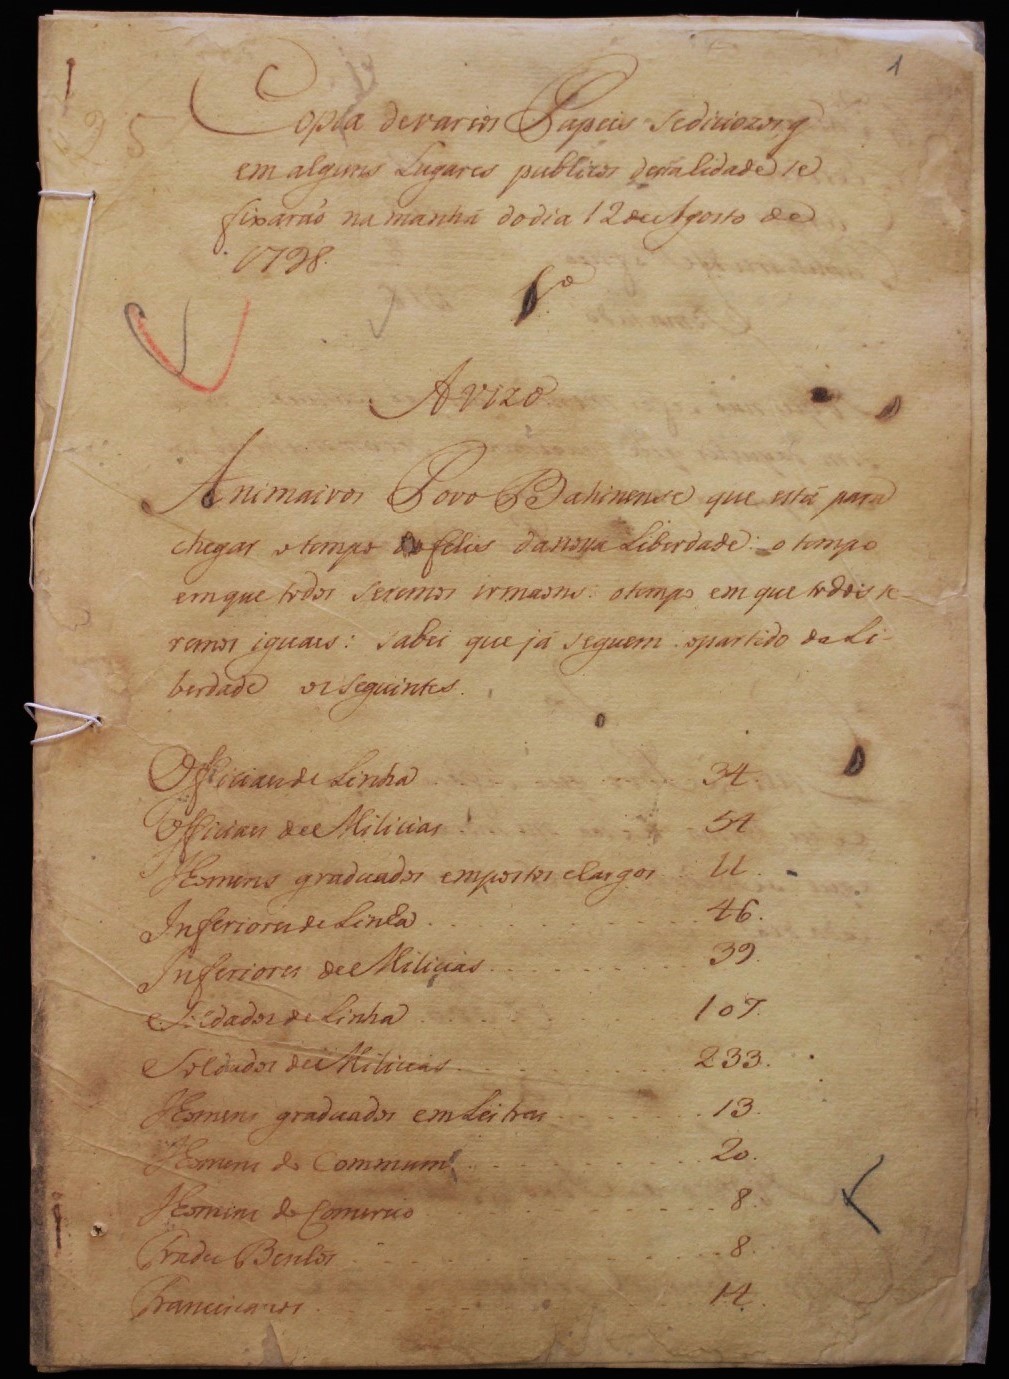 1
Copia de varios Papeis sediciozos q
em alguns Lugares publicos desta Cidade se
fixarão na manhã do dia 12 de Agosto de
1798.
1º
Avizo
Animaivos Povo Bahinense que está para
chegar o tempo feliz da nossa Liberdade: o tempo
em que todos seremos irmaons: o tempo em que todos se
remos iguaes: sabei que já seguem o partido da Li-
berdade os seguintes.
Officiaes de Linha 34.
Officiaes de Milicias 54
Homens graduados em postos e cargos 11
Inferiores de Linha 46.
Inferiores de Milicias 39.
Soldados de Linha 107.
Soldados de Milicias 233.
Homens graduados em Letras 13.
Homens do Commum 20.
Homens do Comercio 8.
Frades Bentos 8.
Franciscanos 14.